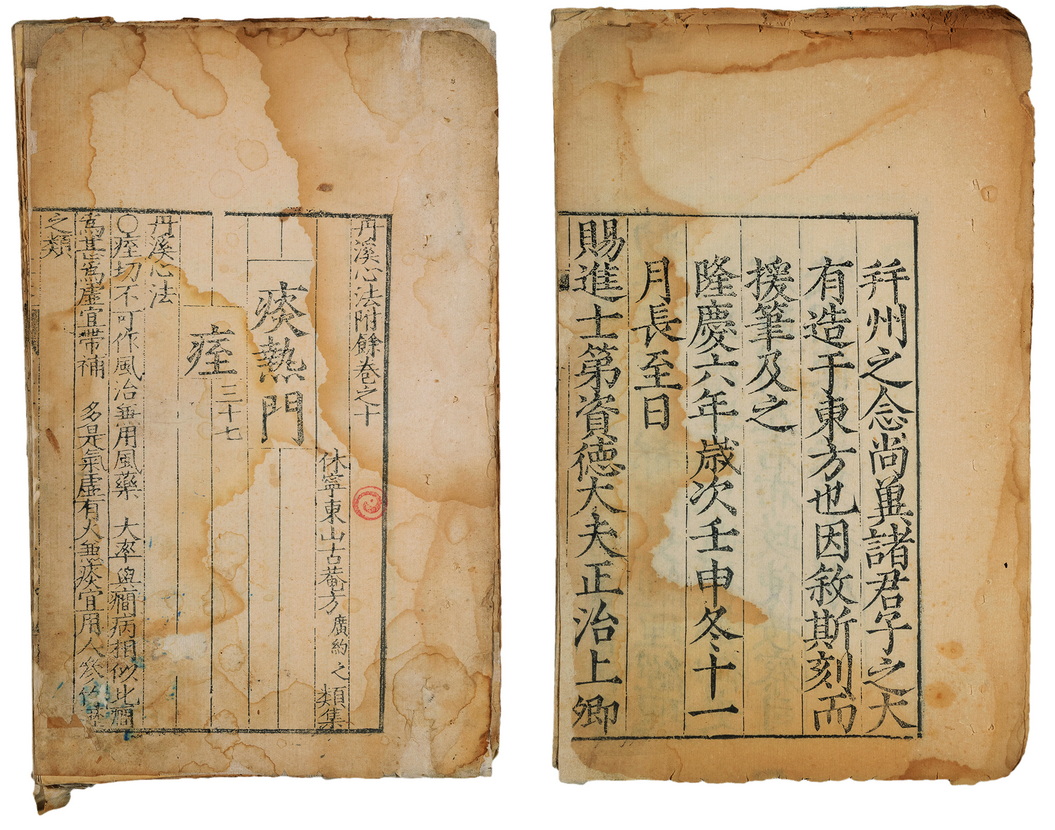 丹溪心法附餘卷之十
休寧東山古菴方廣約之類集
痰熱門
痓三十七
丹溪心法
○痓切不可作風治兼用風藥 大率與癇病相似比癇
為甚為虛宜帶補 多是氣虛有火兼痰宜用人參竹瀝
之類
幷州之念尚冀諸君子之大
有造于東方也因敘斯刻而
援筆及之
隆慶六年歲次壬申冬十一
月長至日
賜進士第資德大夫正治上卿